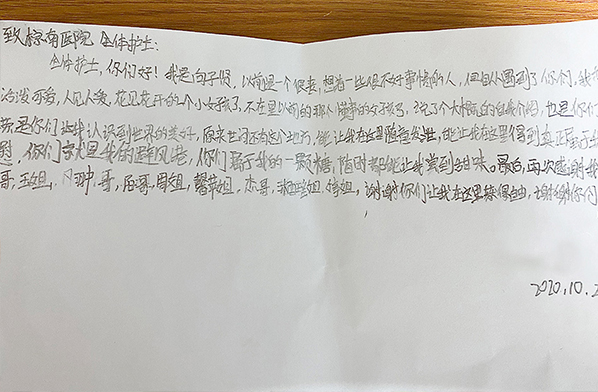 致棕南医院 全体护士:
全体护士,你们好!我是向子悦,以前是一个很丧,想着一些很不好事情的人,但自从遇到了你们,我
活泼可爱,人见人爱,花见花开的一个小女孩了,不在是以前的那个懵懂的女孩了,说了个大概的自我介绍,也是你们
是你们让我认识到世界的美好,原来世间还有这个地方,能让我在这里随意发泄,能让我在这里得到真正属于
你们宛如是我的避风港,你们属于我的一颗糖,随时都能让我赏到甜味。最后,再次感谢
哥,王姐,哥,哥,周姐,馨姐,杰哥,姐,姐,谢谢你们让我在这里,谢谢你们
2020.10.2